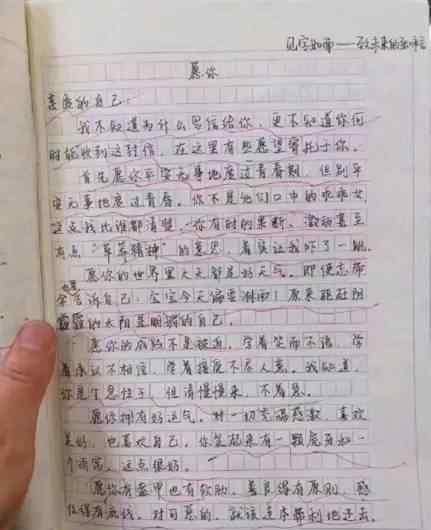 见字如面——致未来的
愿你
亲爱的自己：
我不知道为什么写信给你，更不知道你何
时能收到这封信，在这里有些愿望寄托于你。
首先愿你平安无事地度过青春期，但别平
安无事地度过青春。你不是他们口中的乖乖女，
这点我比谁都清楚。你有时的果断、激动甚至
有点“草莽精神”的意思，着实让我吓了一跳。
愿你的世界里天天都是好天气。即便忘带
伞告诉自己：宝宝今天偏要淋雨！原来能赶阴
霾的太阳是明媚的自己。
愿你的成熟不是被迫，学着笑而不语，学
着承认不相信，学着接受不尽人意。我知道，
你是个急性子，但请慢慢来，不着急。
愿你拥有好运气。对一切充满感激，喜欢
美好，也喜欢自己，你笑起来有一颗虎牙和一
个酒窝，这点很好。
愿你有盔甲也有软肋，善良得有原则，感
性得有底线。对可恶的，就该连本带利地还去，